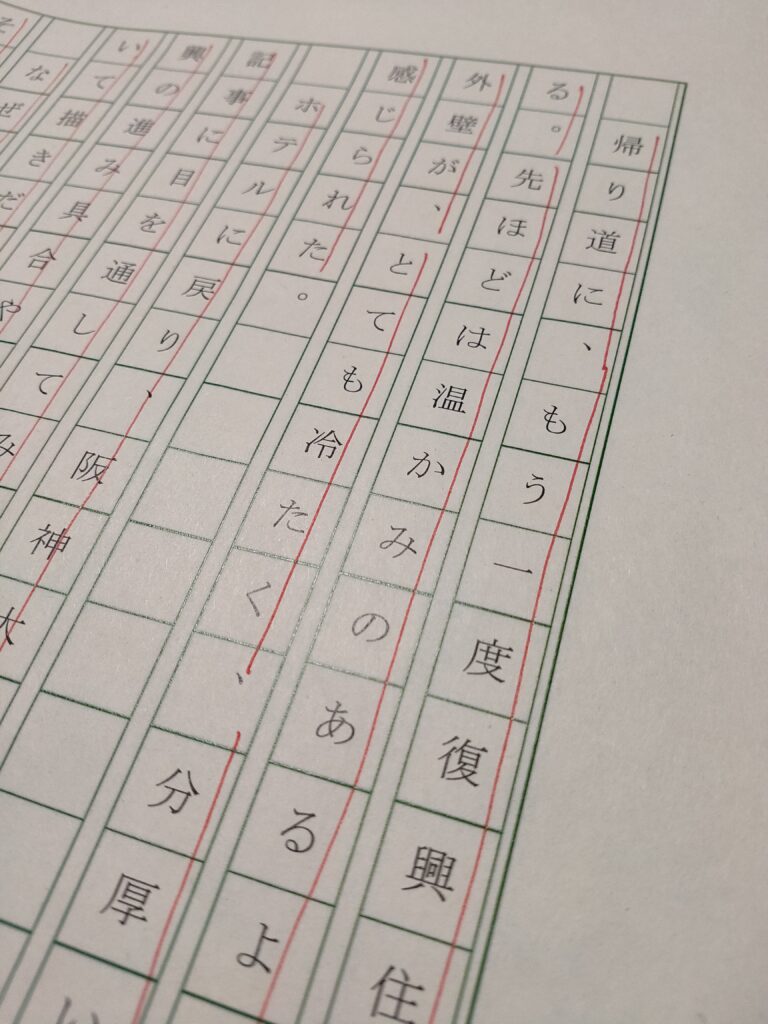 帰り道に、もう一度復興住
る。先ほどは温かみのあるよ
外壁が、とても冷たく、分厚い
感じられた。
ホテルに戻り、阪神大
記事に目を通してみ
興の進み具合や
いて描きだ
なぜ
そ